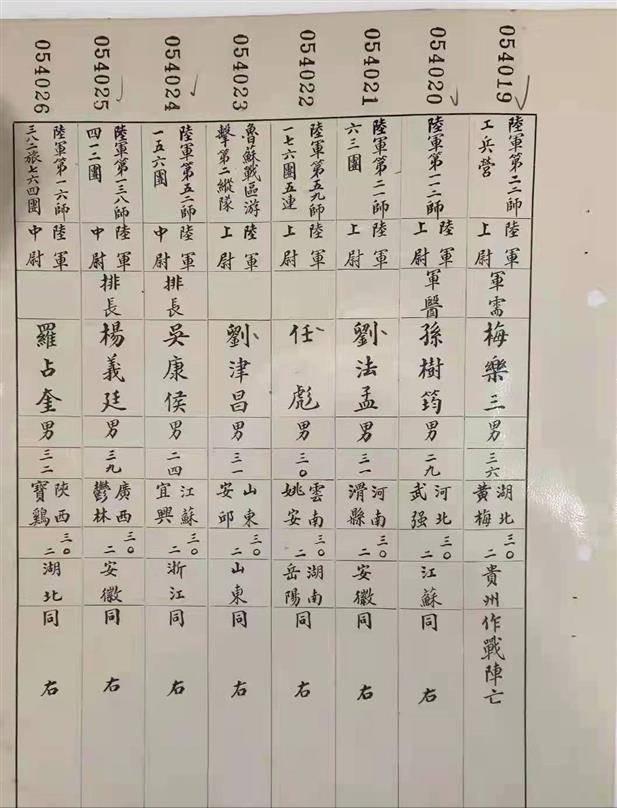 054019
陸軍第二二師
工兵營
陸軍
上尉
軍需
梅樂三
男
三六
湖北
黃梅
三〇
二
貴州
作戰陣亡
054020
陸軍第一一二師
陸軍
上尉
軍醫
孫樹筠
男
二九
河北
武强
三〇
二
江蘇
同右
054021
陸軍第二一師
六三團
陸軍
上尉
劉法孟
男
三一
河南
滑縣
三〇
二
安徽
同右
054022
陸軍第五九師
一七六團五連
陸軍
上尉
任彪
男
三〇
雲南
姚安
三〇
二
湖南
岳陽
同右
054023
魯蘇戰區游
擊第二縱隊
陸軍
上尉
劉津昌
男
三一
山東
安邱
三〇
二
山東
同右
054024
陸軍第五二師
一五六團
陸軍
中尉
排長
吳康侯
男
二四
江蘇
宜興
三〇
二
浙江
同右
054025
陸軍第一三八師
四一二團
陸軍
中尉
排長
楊義廷
男
三九
廣西
鬱林
三〇
二
安徽
同右
054026
陸軍第一六師
三八二旅七六四團
陸軍
中尉
羅占奎
男
三二
陝西
寶鷄
三〇
二
湖北
同右